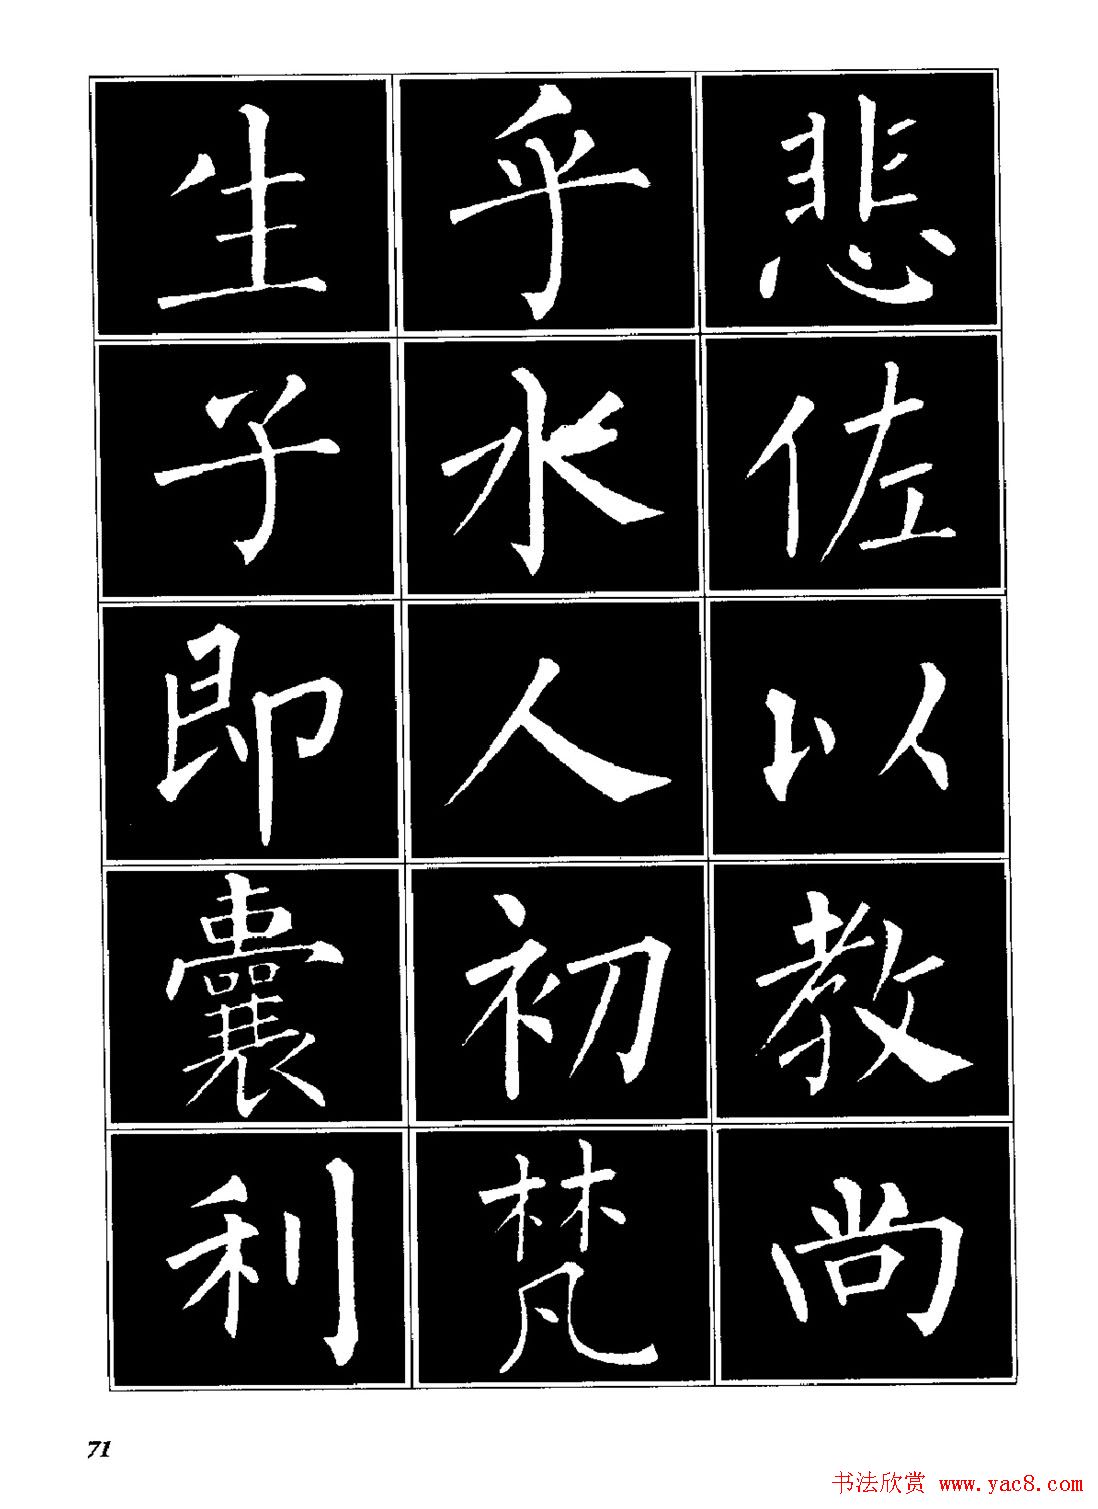 悲佐以教尚
乎水人初梵
生子即囊利
71
书法欣赏 www.yac8.com